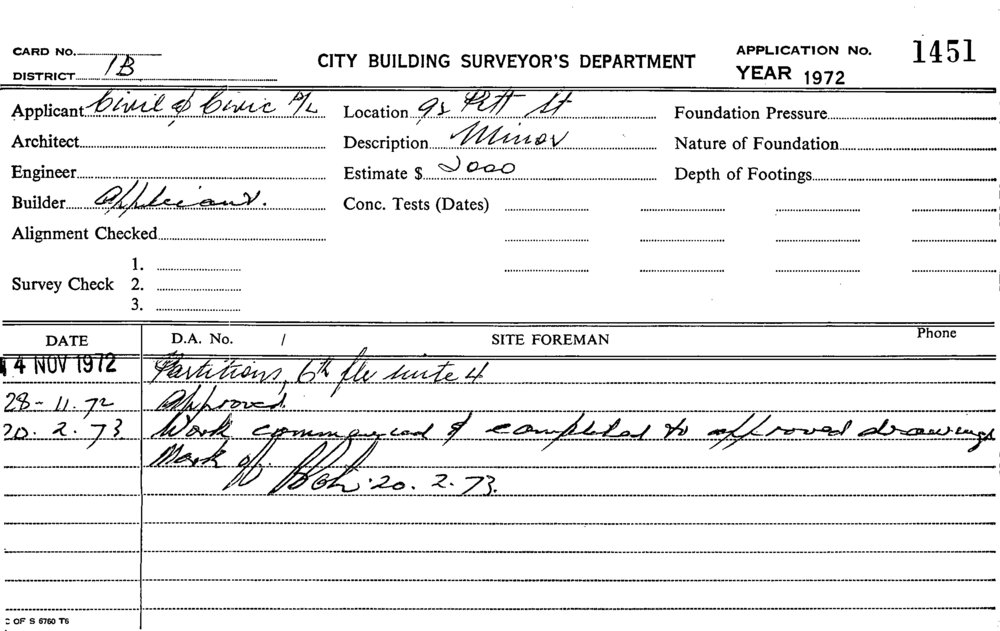 CARD NO. APPLICATION NO. 1451
DISTRICT 1B CITY BUILDING SURVEYOR'S DEPARTMENT YEAR 1972
Applicant Civil & Civic P/L Location 92 Pitt St Foundation Pressure
Architect Description Minor Nature of Foundation
Engineer Estimate $ 2000 Depth of Footings
Builder Applicant. Conc. Tests (Dates)
Alignment Checked
1.
Survey Check 2.
3.
DATE D.A. No. / SITE FOREMAN Phone
4 NOV 1972 Partitions, 6th flr suite 4
28-11.72 Approved.
20.2.73. Work commenced & completed to approved drawings
Mark off. 20.2.73.
C OF S 6760 T6